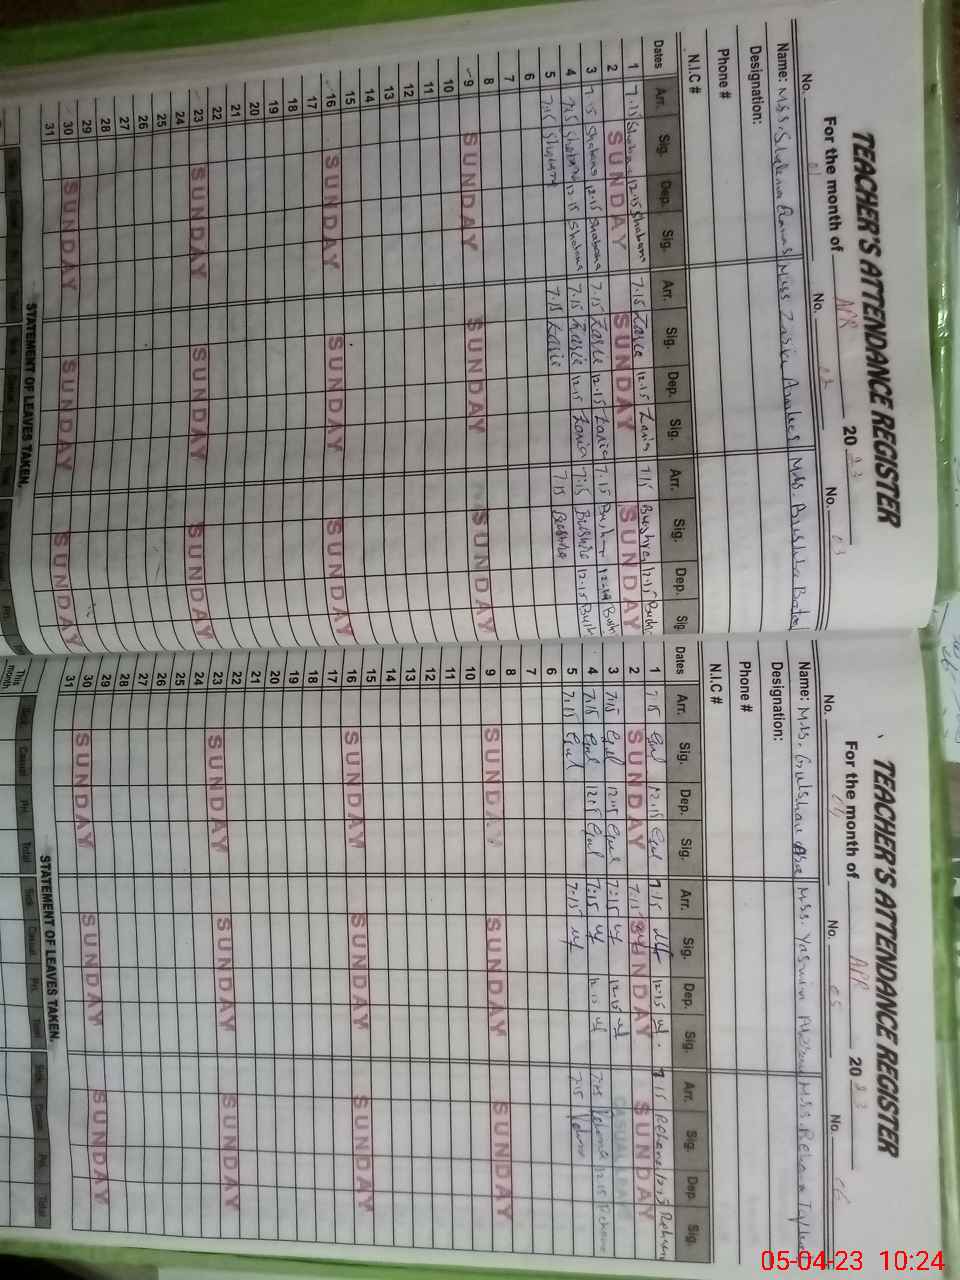 TEACHER'S ATTENDANCE REGISTER
For the month of APR 2023
No. 01 No. 02 No. 03
Name: Mss. Mss. Mss. Bushra
Designation:
Phone #
N.I.C #
Dates Arr. Sig. Dep. Sig. Arr. Sig. Dep. Sig. Arr. Sig. Dep. Sig.
1 7.15 Shabana 12.15 Shabana 7.15 Zaria 12.15 Zaria 7.15 Bushra 12.15 Bushra
2 SUNDAY SUNDAY SUNDAY
3 7.15 Shabana 12.15 Shabana 7.15 Zaria 12.15 Zaria 7.15 Bushra
4 7.15 Shabana 12.15 Shabana 7.15 Zaria 12.15 Zaria 7.15 Bushra 12.15
5 7.15 7.15 Zaria 7.15 Bushra
6
7
8
9 SUNDAY SUNDAY SUNDAY
10
11
12
13
14
15
16 SUNDAY SUNDAY SUNDAY
17
18
19
20
21
22
23 SUNDAY SUNDAY SUNDAY
24
25
26
27
28
29
30 SUNDAY SUNDAY SUNDAY
31
STATEMENT OF LEAVES TAKEN.
TEACHER'S ATTENDANCE REGISTER
For the month of APR 2023
No. 04 No. 05 No. 06
Name: Mss. Gulshan Mss. Yasmin Mss.
Designation:
Phone #
N.I.C #
Dates Arr. Sig. Dep. Sig. Arr. Sig. Dep. Sig. Arr. Sig. Dep. Sig.
1 7.15 Gul 12.15 Gul 7.15 12.15 7.15 Rehana 12.15
2 SUNDAY 7.15 SUNDAY SUNDAY
3 7.15 Gul 12.15 Gul 7.15 12.15 CASUAL LEAVE
4 7.15 Gul 12.15 Gul 7.15 12.15 7.15 Rehana 12.15 Rehana
5 7.15 Gul 7.15 7.15
6
7
8
9 SUNDAY SUNDAY SUNDAY
10
11
12
13
14
15
16 SUNDAY SUNDAY SUNDAY
17
18
19
20
21
22
23 SUNDAY SUNDAY SUNDAY
24
25
26
27
28
29
30 SUNDAY SUNDAY SUNDAY
31
STATEMENT OF LEAVES TAKEN.
This month Sick Casual Pri. Total Sick Casual Pri. Total Sick Casual Pri. Total
05-04-23 10:24